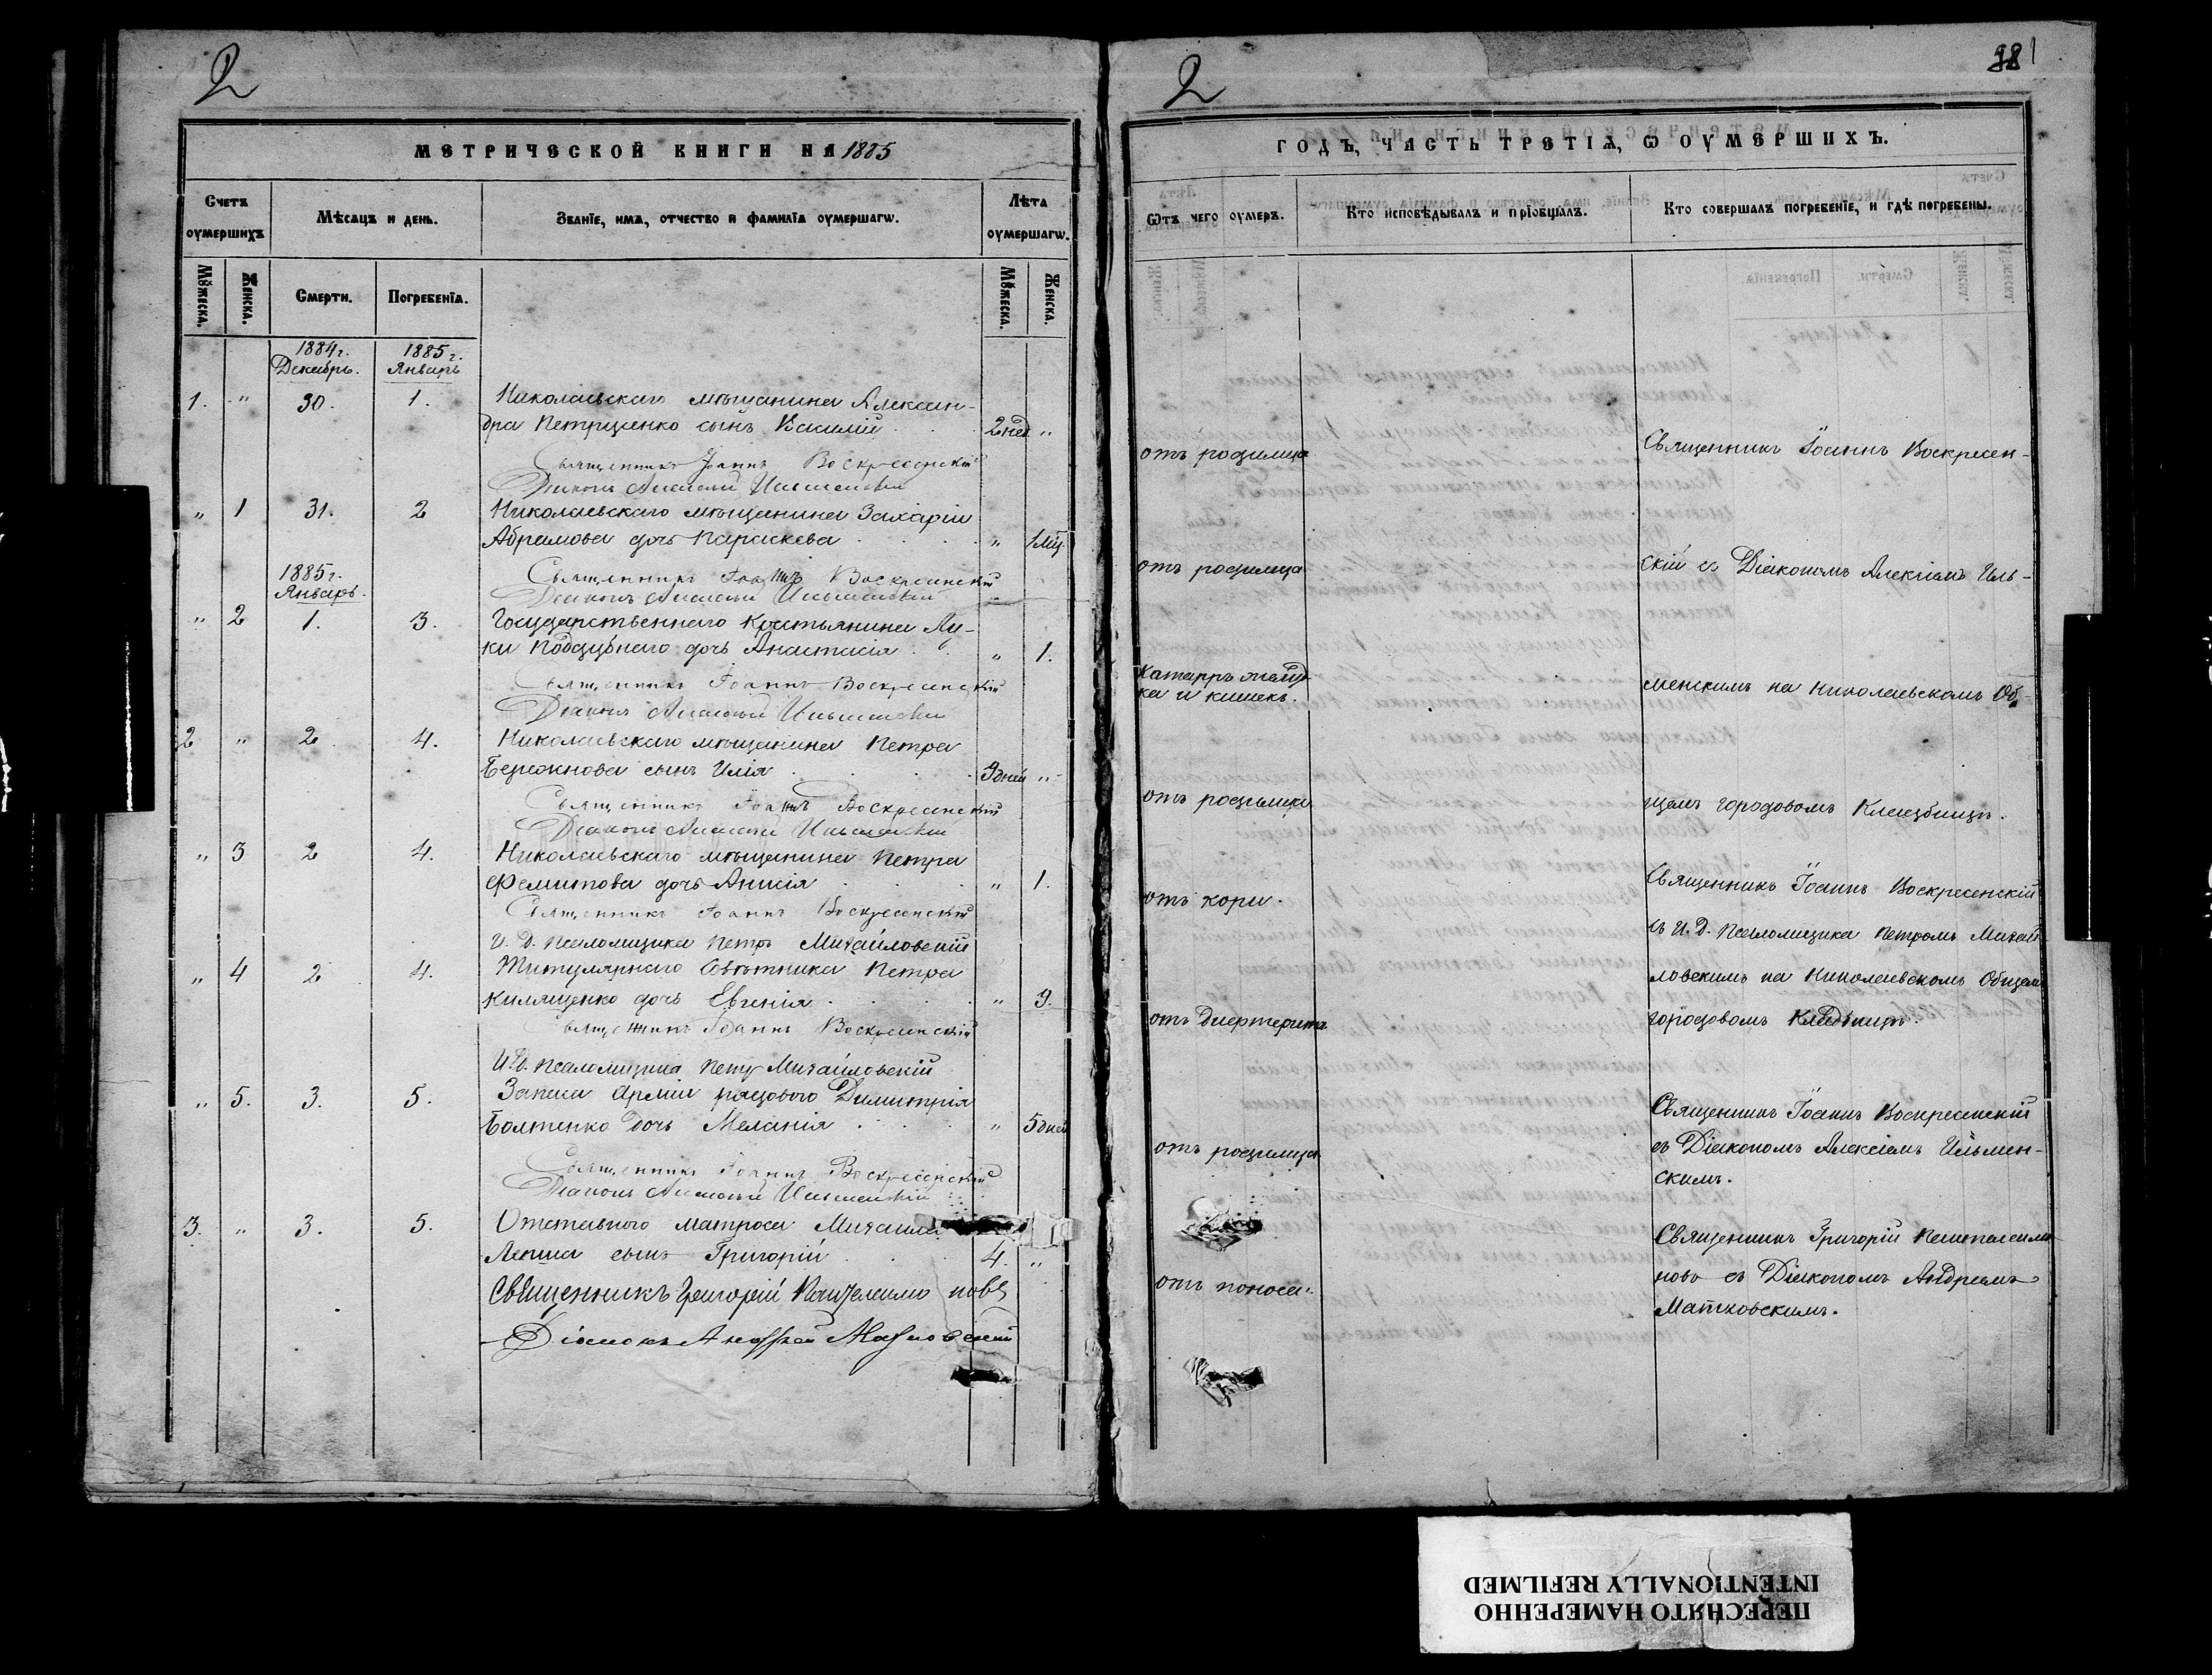 2
МЕТРИЧЕСКОЙ КНИГИ НА 1885
Счетъ оумершихъ
Мѣсяцъ и день.
Званіе, имѧ, отчество и фамилїѧ оумершагѡ.
Лѣта оумершагѡ.
Мꙋжеска.
Женска.
Смерти.
Погребенїѧ.
Мꙋжеска.
Женска.
1884 г. Декабрь.
1885 г. Январь
1. " 30. 1. Николаевскаго мѣщанина Алексан-
дра Петрушенко сынъ Василій 2 нед "
Священникъ Іоаннъ Воскресенскій
Діаконъ Алексій Ильменскій
" 1 31. 2 Николаевскаго мѣщанина Захарія
Абрамова дочь Параскева " 1 Мц.
1885 г.
Январь.
Священникъ Іоаннъ Воскресенскій
Діаконъ Алексій Ильменскій
" 2 1. 3. Государственнаго крестьянина Лу-
ки дочь Анастасія " 1.
Священникъ Іоаннъ Воскресенскій
Діаконъ Алексій Ильменскій
2 " 2 4. Николаевскаго мѣщанина Петра
Бережнова сынъ Илія 9 дней "
Священникъ Іоаннъ Воскресенскій
Діаконъ Алексій Ильменскій
" 3 2 4. Николаевскаго мѣщанина Петра
Филитова дочь Анисія " 1.
Священникъ Іоаннъ Воскресенскій
И. Д. Псаломщика Петръ Михайловскій
" 4 2 4. Титулярнаго Совѣтника Петра
Килященко дочь Евгенія " 9.
Священникъ Іоаннъ Воскресенскій
И. Д. Псаломщика Петръ Михайловскій
" 5. 3. 5. Запаса Арміи рядового Димитрія
Болтенко дочь Меланія " 5 дней
Священникъ Іоаннъ Воскресенскій
Діаконъ Алексій Ильменскій
3. " 3. 5. Отставного матроса Михаила
сынъ Григорій 4. "
Священникъ Григорій Пантелеимоновъ
Діаконъ Андрей Матковскій
2
ГОДЪ, ЧАСТЬ ТРЕТІѦ, Ѡ ОУМЕРШИХЪ.
Ѿтъ чего оумеръ.
Кто исповѣдывалъ и прїобщалъ.
Кто совершалъ погребенїе, и гдѣ погребены.
отъ родимца
Священникъ Іоаннъ Воскресен-
отъ родимца
скій съ Діакономъ Алексіемъ Иль-
Катарръ желуд-
ка и кишекъ.
менскимъ на Николаевскомъ Об-
отъ родимца
щемъ городовомъ Кладбищѣ.
отъ кори.
Священникъ Іоаннъ Воскресенскій
съ И. Д. Псаломщика Петромъ Михай-
ловскимъ на Николаевскомъ Общем
отъ Дифтерита
городовомъ Кладбищѣ.
отъ родимца
Священникъ Іоаннъ Воскресенскій
съ Діакономъ Алексіемъ Ильмен-
скимъ.
отъ поноса.
Священникъ Григорій Пантелеимо-
новъ съ Діакономъ Андреемъ
Матковскимъ.
ПЕРЕСНЯТО НАМЕРЕННО
INTENTIONALLY REFILMED